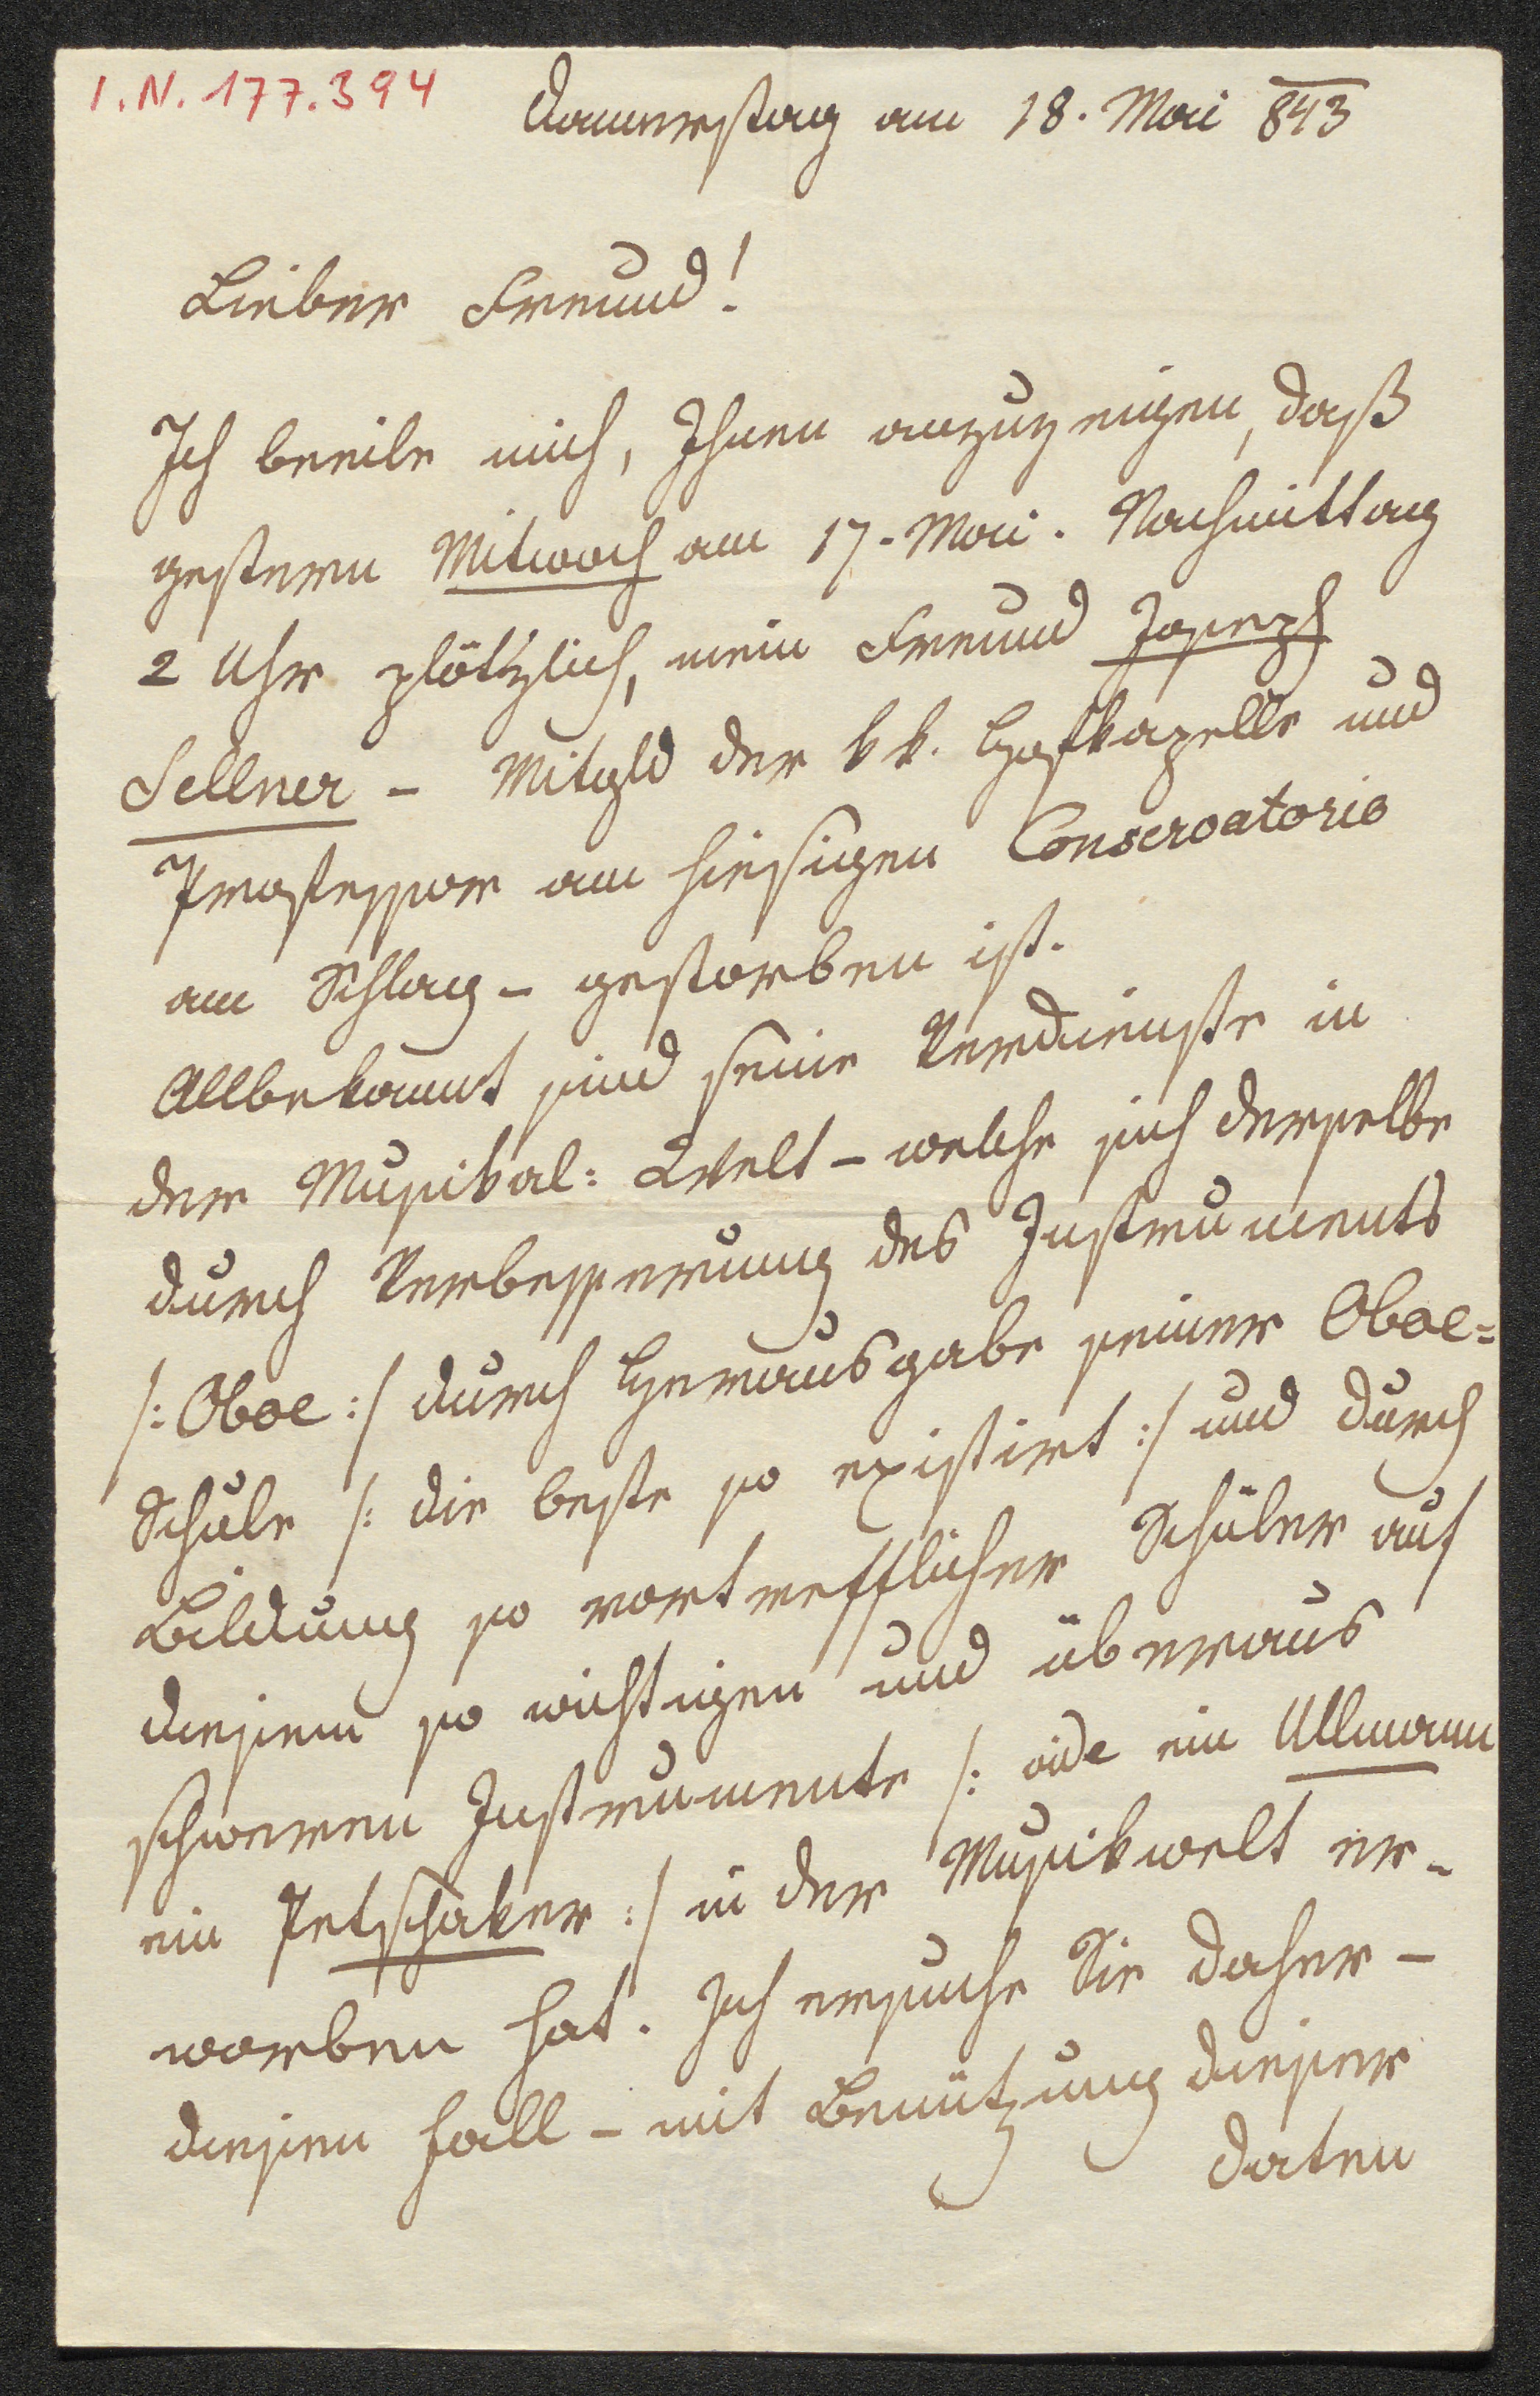 I.N. 177.394
Donnerstag am 18. Mai 843
Lieber Freund!
Ich beeile mich, Ihnen anzuzeigen, daß
gestern Mitwoch am 17. Mai. Nachmittag
2 Uhr plötzlich, mein Freund Joseph
Sellner – Mitgld der k k. Hofkapelle und
Professor am hiesigen Conservatorio
am Schlag – gestorben ist.
Allbekannt sind seine Verdienste in
der Musikal: Welt – welche sich derselbe
durch Verbesserung des Instruments
/: Oboe :/ durch Herausgabe seiner Oboe=
Schule /: die beste so existirt :/ und durch
Bildung so vortrefflicher Schüler auf
diesem so wichtigen und überaus
schweren Instrumente /: vide ein Ullmann
ein Petschaker :/ in der Musikwelt er-
worben hat. Ich ersuche Sie daher –
diesen Fall – mit Benützung dieser
Daten